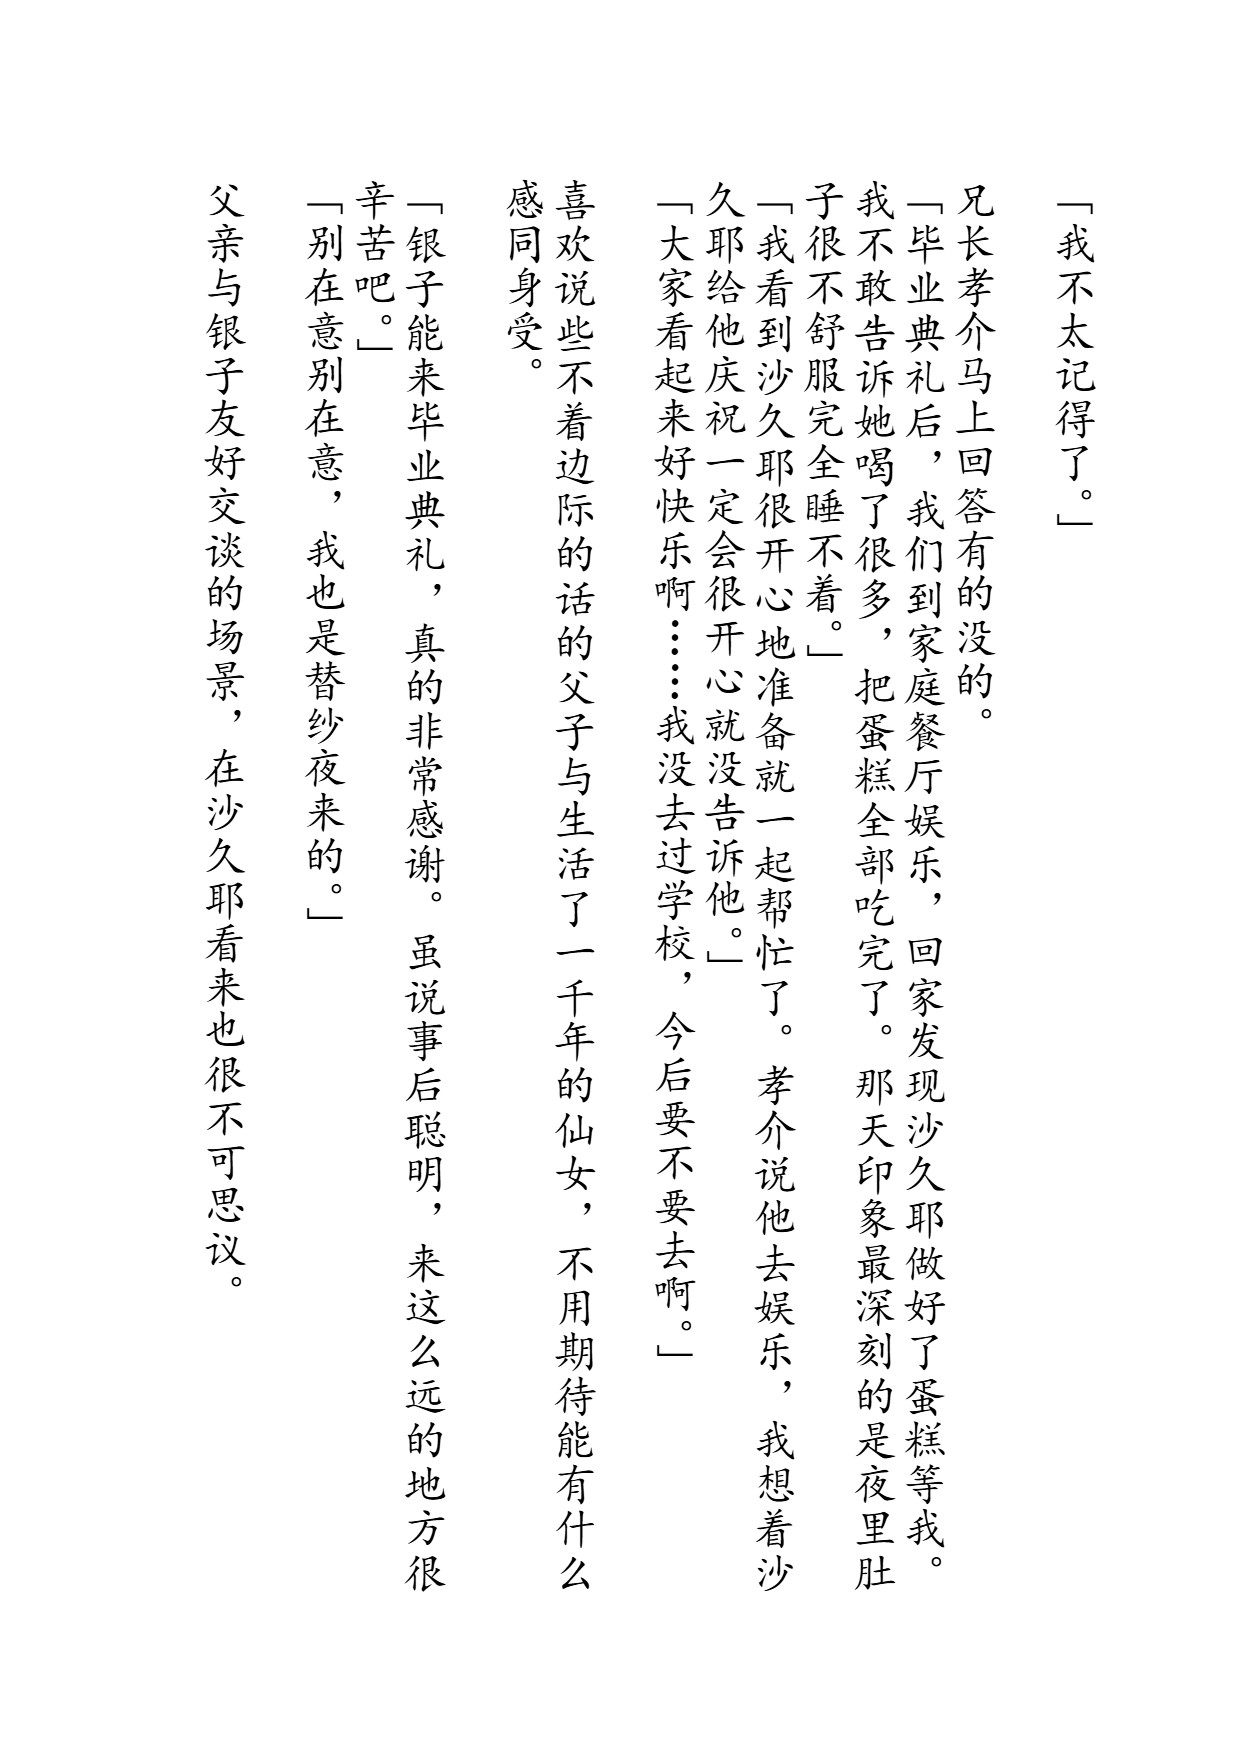 「我不太记得了。」
兄长孝介马上回答有的没的。
「毕业典礼后，我们到家庭餐厅娱乐，回家发现沙久耶做好了蛋糕等我。
我不敢告诉她喝了很多，把蛋糕全部吃完了。那天印象最深刻的是夜里肚
子很不舒服完全睡不着。」
「我看到沙久耶很开心地准备就一起帮忙了。孝介说他去娱乐，我想着沙
久耶给他庆祝一定会很开心就没告诉他。」
「大家看起来好快乐啊……我没去过学校，今后要不要去啊。」
喜欢说些不着边际的话的父子与生活了一千年的仙女，不用期待能有什么
感同身受。
「银子能来毕业典礼，真的非常感谢。虽说事后聪明，来这么远的地方很
辛苦吧。」
「别在意别在意，我也是替纱夜来的。」
父亲与银子友好交谈的场景，在沙久耶看来也很不可思议。